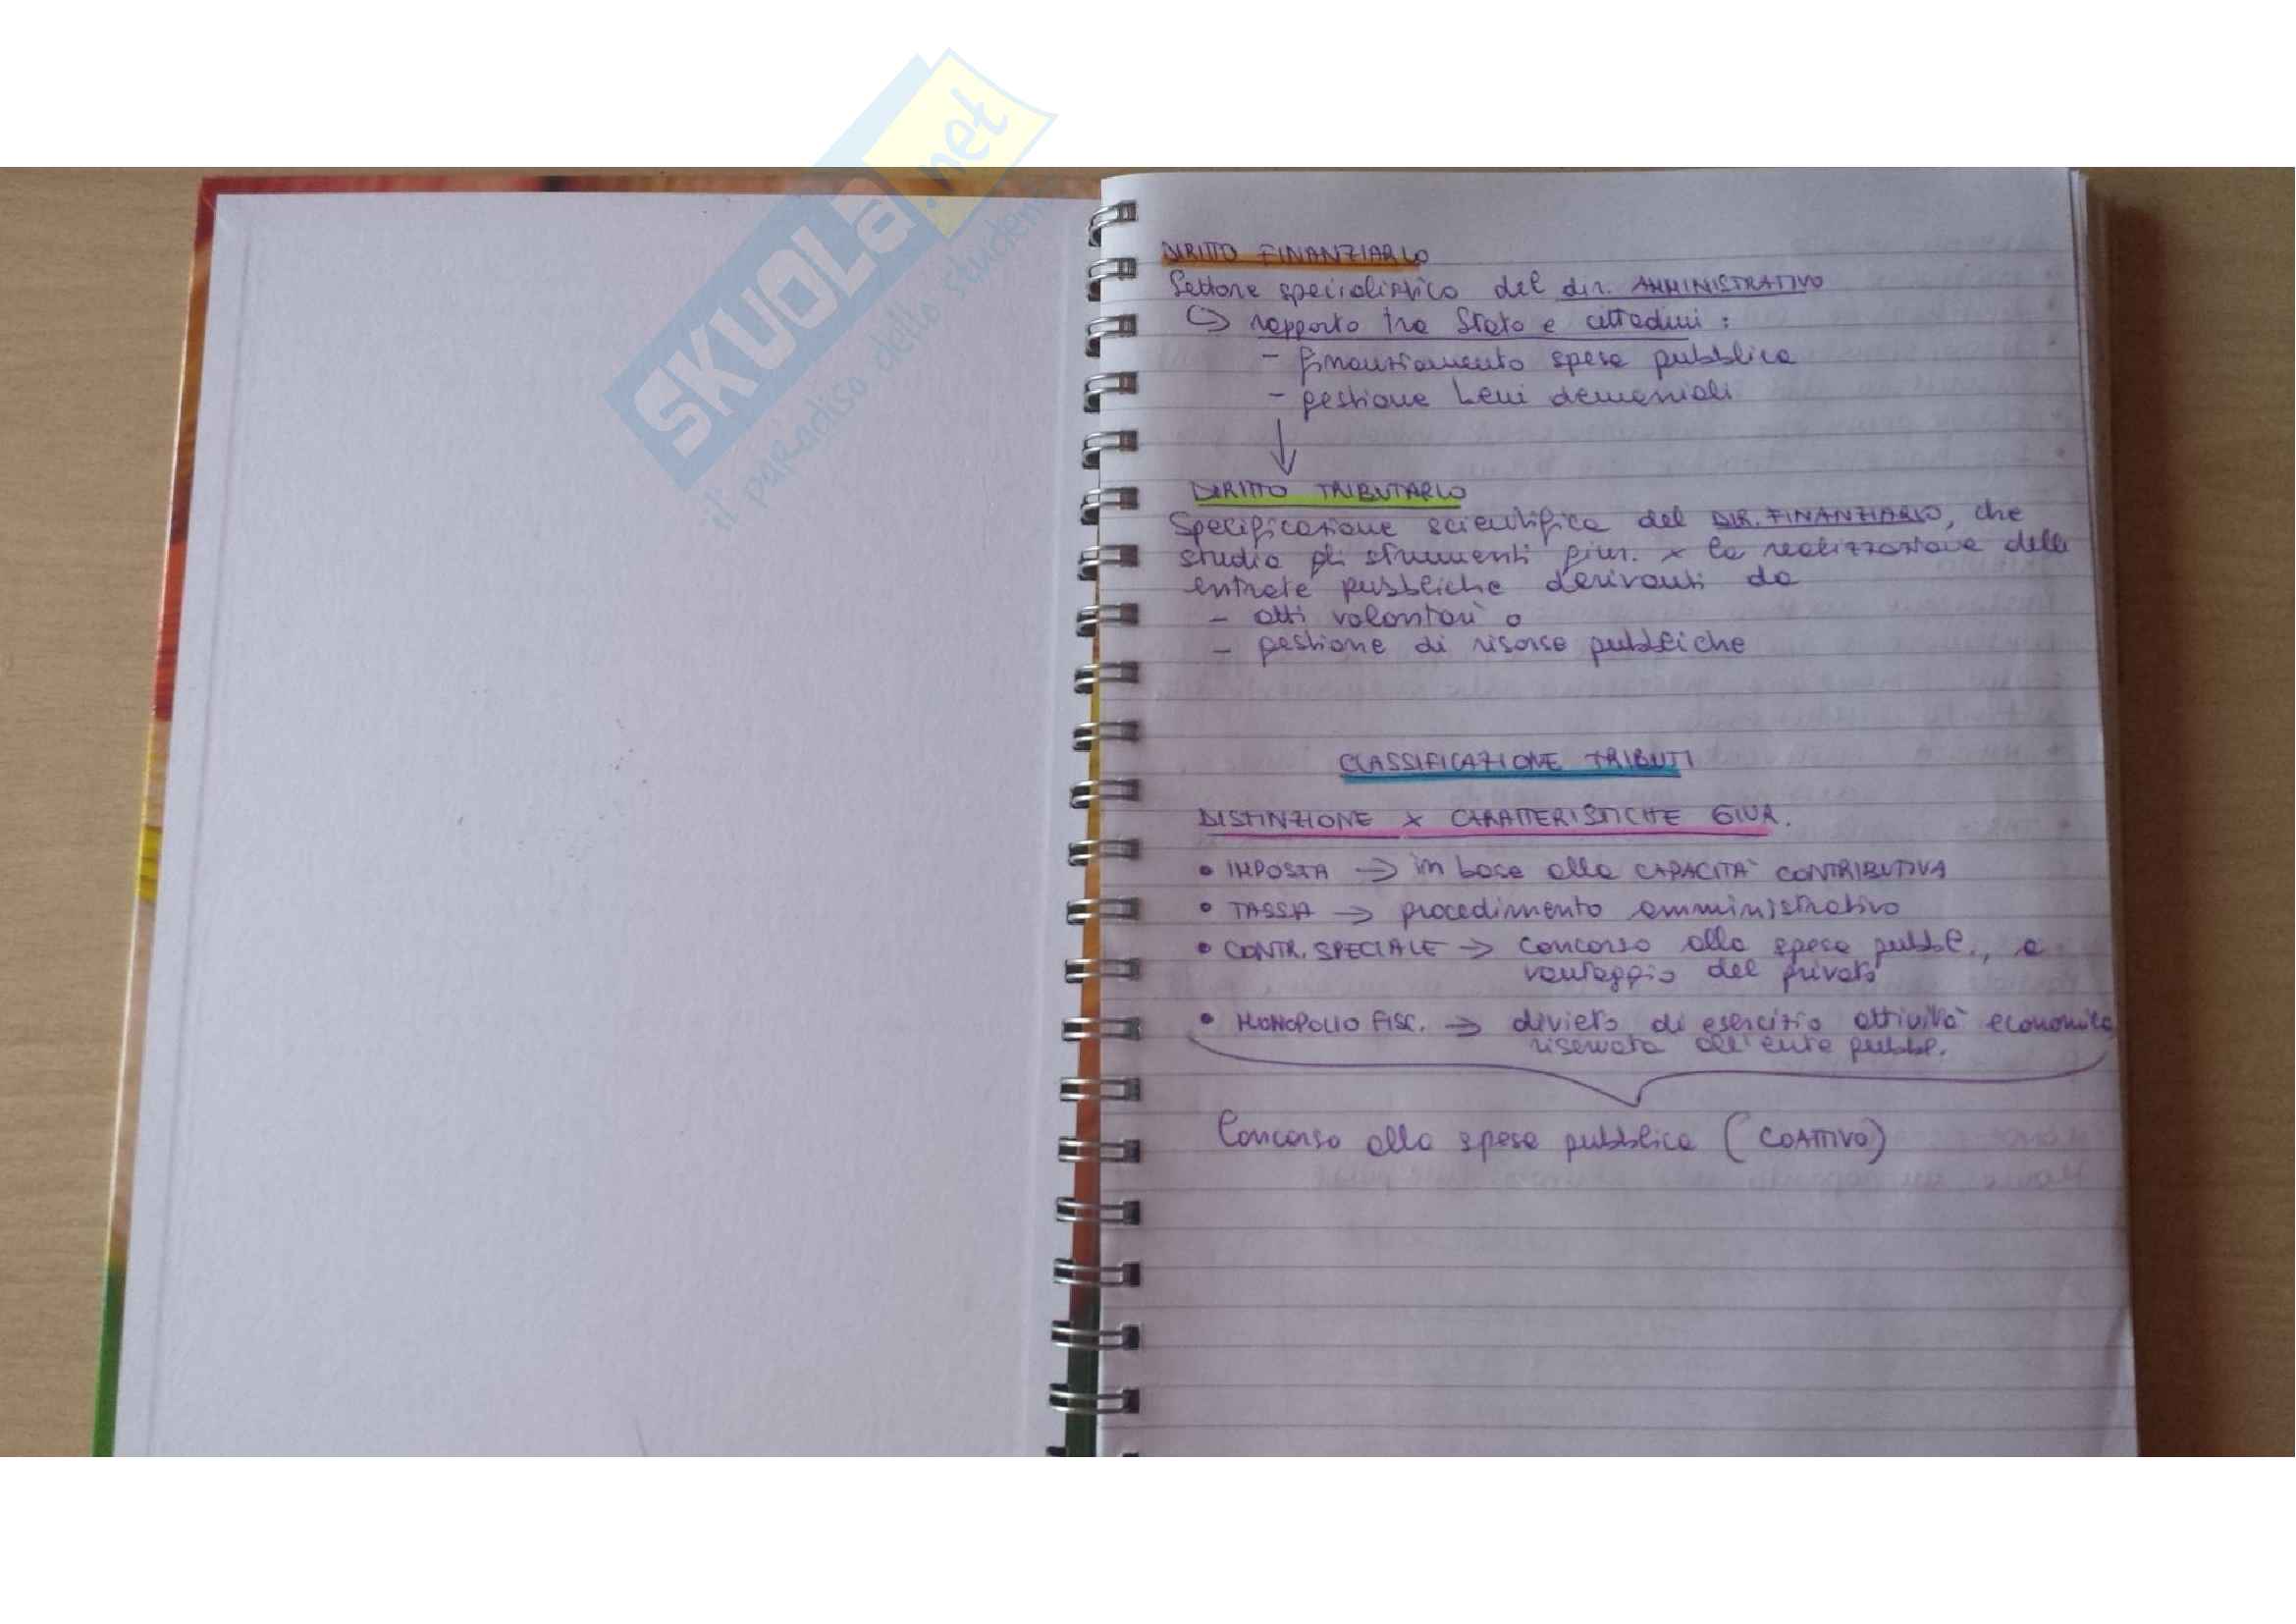 SKUOLA.net
il paradiso dello studente
DIRITTO FINANZIARIO
Settore specialistico del dir. AMMINISTRATIVO
↳ rapporto tra Stato e cittadini :
- finanziamento spesa pubblica
- gestione beni demaniali
↓
DIRITTO TRIBUTARIO
Specificazione scientifica del DIR. FINANZIARIO, che
studia gli strumenti giur. x la realizzazione delle
entrate pubbliche derivanti da
- atti volontari o
- gestione di risorse pubbliche
CLASSIFICAZIONE TRIBUTI
DISTINZIONE x CARATTERISTICHE GIUR.
• IMPOSTA → in base alla CAPACITA' CONTRIBUTIVA
• TASSA → procedimento amministrativo
• CONTR. SPECIALE → concorso alla spesa pubbl., a
vantaggio del privato
• MONOPOLIO FISC. → divieto di esercizio attività economica
riservata all'ente pubbl.
Concorso alla spesa pubblica (COATTIVO)